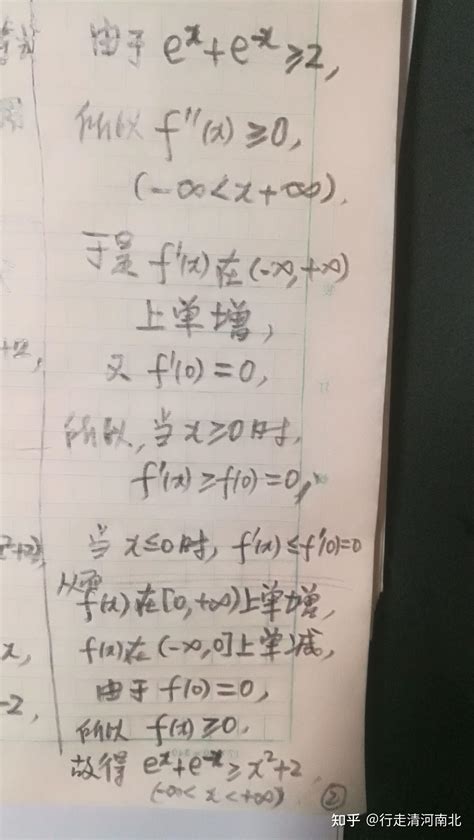 由于 eˣ+e⁻ˣ≥2,
所以 f''(x)≥0,
(-∞<x+∞).
于是 f'(x)在(-∞,+∞)
上单增,
又 f'(0)=0,
所以,当x≥0时,
f'(x)≥f(0)=0,
当 x≤0时, f'(x)≤f'(0)=0
从而
f(x)在[0,+∞)上单增,
f(x)在(-∞,0]上单减,
由于 f(0)=0,
所以 f(x)≥0,
故得 eˣ+e⁻ˣ≥x²+2
(-∞<x<+∞) ②
x,
-2,
知乎 @行走清河南北